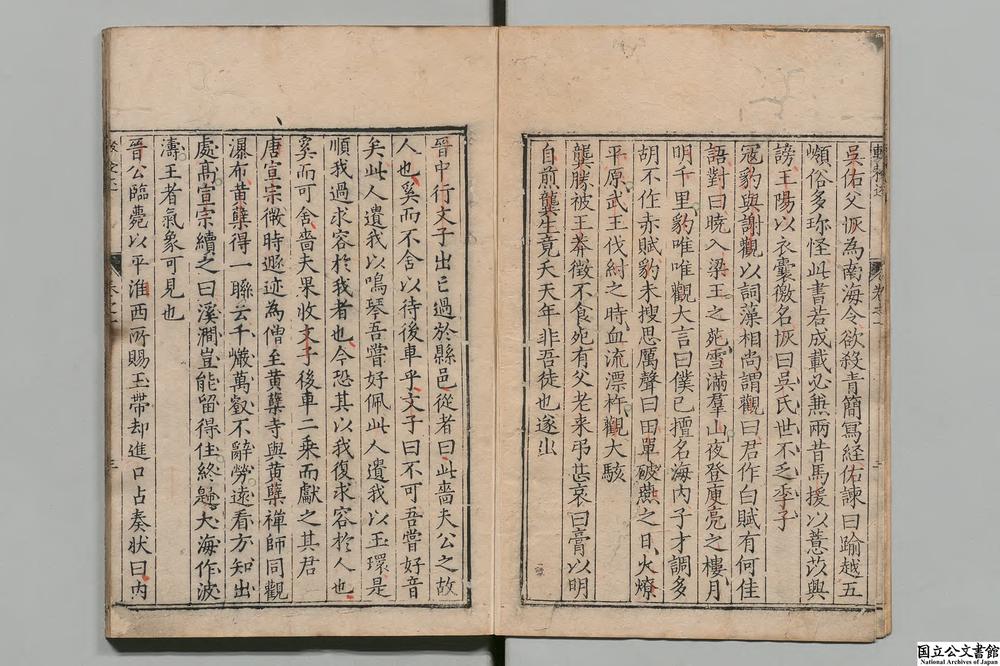 吳佑父恢為南海令欲殺青簡寫経佑諫曰踰越五
嶺俗多珎怪此書若成載必兼兩昔馬援以薏苡興
謗王陽以衣囊徼名恢曰吳氏世不乏季子
寇豹與謝觀以詞藻相尚謂觀曰君作白賦有何佳
語對曰曉入梁王之苑雪滿羣山夜登庾亮之樓月
明千里豹唯唯觀大言曰僕已擅名海内子才調多
胡不作赤賦豹未搜思厲聲曰田單破燕之日火燎
平原武王伐紂之時血流漂杵觀大駭
龔勝被王莾徵不食死有父老来弔甚哀曰膏以明
自煎龔生竟夭天年非吾徒也遂出
晉中行文子出亡過於縣邑從者曰此嗇夫公之故
人也奚而不舍以待後車乎文子曰不可吾嘗好音
矣此人遺我以鳴琴吾嘗好佩此人遺我以玉環是
順我過求容於我者也今恐其以我復求容於人也
奚而可舍嗇夫果收文子後車二乗而獻之其君
唐宣宗微時遯迹為僧至黄蘗寺與黄蘗禪師同觀
瀑布黄蘗得一聯云千巖萬壑不辭勞遠看方知出
處髙宣宗續之曰溪澗豈能留得住終歸大海作波
濤王者氣象可見也
晉公臨薨以平淮西所賜玉帶却進口占奏狀曰内
三
国立公文書館
National Archives of Japan